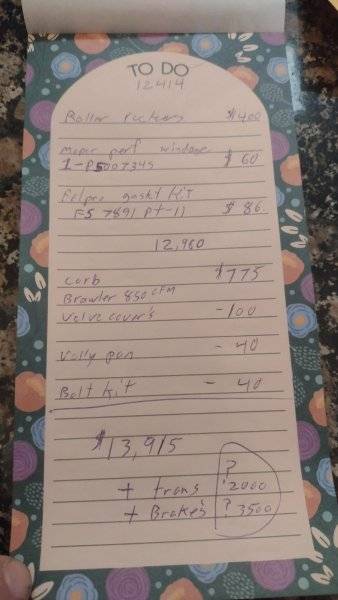 TO DO
12414
Roller rockers $400
moper perf windage
1-P5007345 $60
Felpro gaskt kit
FS 7891 PT-11 $86
12,960
carb $775
Brawler 850 CFM
Valve cover's -100
Vally pan - 40
Bolt kit - 40
$13,915
+ trans ? 2000
+ Brakes ? 3500